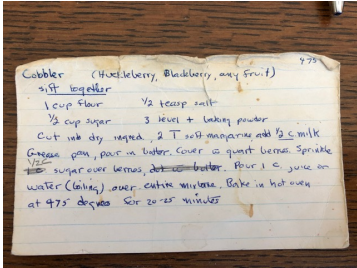 475
Cobbler (Huckleberry, Blackberry, any fruit)
sift together
1 cup flour 1/2 teasp salt
1/2 cup sugar 3 level t baking powder
Cut into dry ingred. 2 T soft margarine add 1/2 c milk
Grease pan, pour in batter. Cover w quart berries. Sprinkle
1/2 C sugar over berries, Pour 1 c juice or
water (boiling) over entire mixture. Bake in hot oven
at 475 degrees for 20-25 minutes